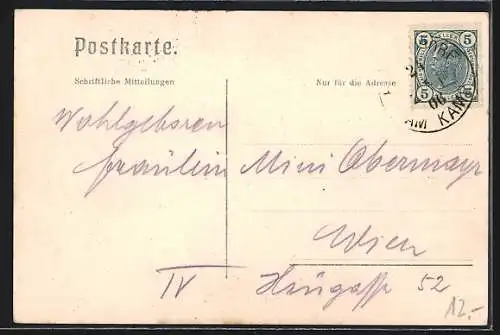 Postkarte.
5 5
Schriftliche Mitteilungen
Nur für die Adresse
5 5
06
AM KAMP
Wohlgeboren
Fräulein Mini Obermayr
Wien
IV
52
12.-